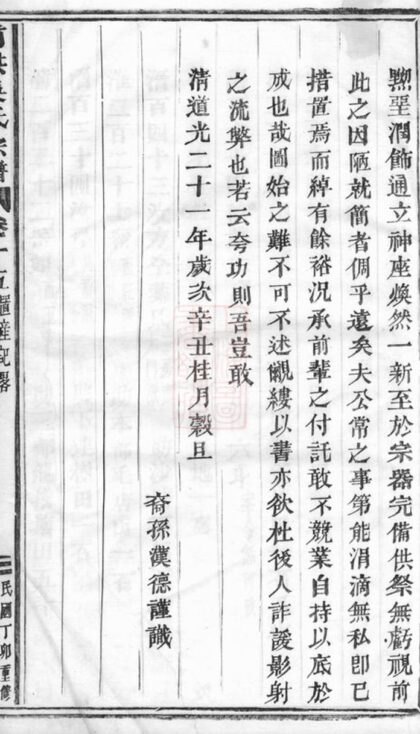 黝堊潤飾通立神座煥然一新至於宗器完備供祭無虧視前
此之因陋就簡者倜乎遠矣夫公常之事第能涓滴無私卽已
措置焉而綽有餘裕況承前輩之付託敢不兢業自持以底於
成也哉圖始之難不可不述覼縷以書亦欲杜後人詐諼影射
之流弊也若云夸功則吾豈敢
清道光二十一年歲次辛丑桂月穀旦
裔孫漢德謹識
氏宗譜
卷十
記畧
民國丁卯重修